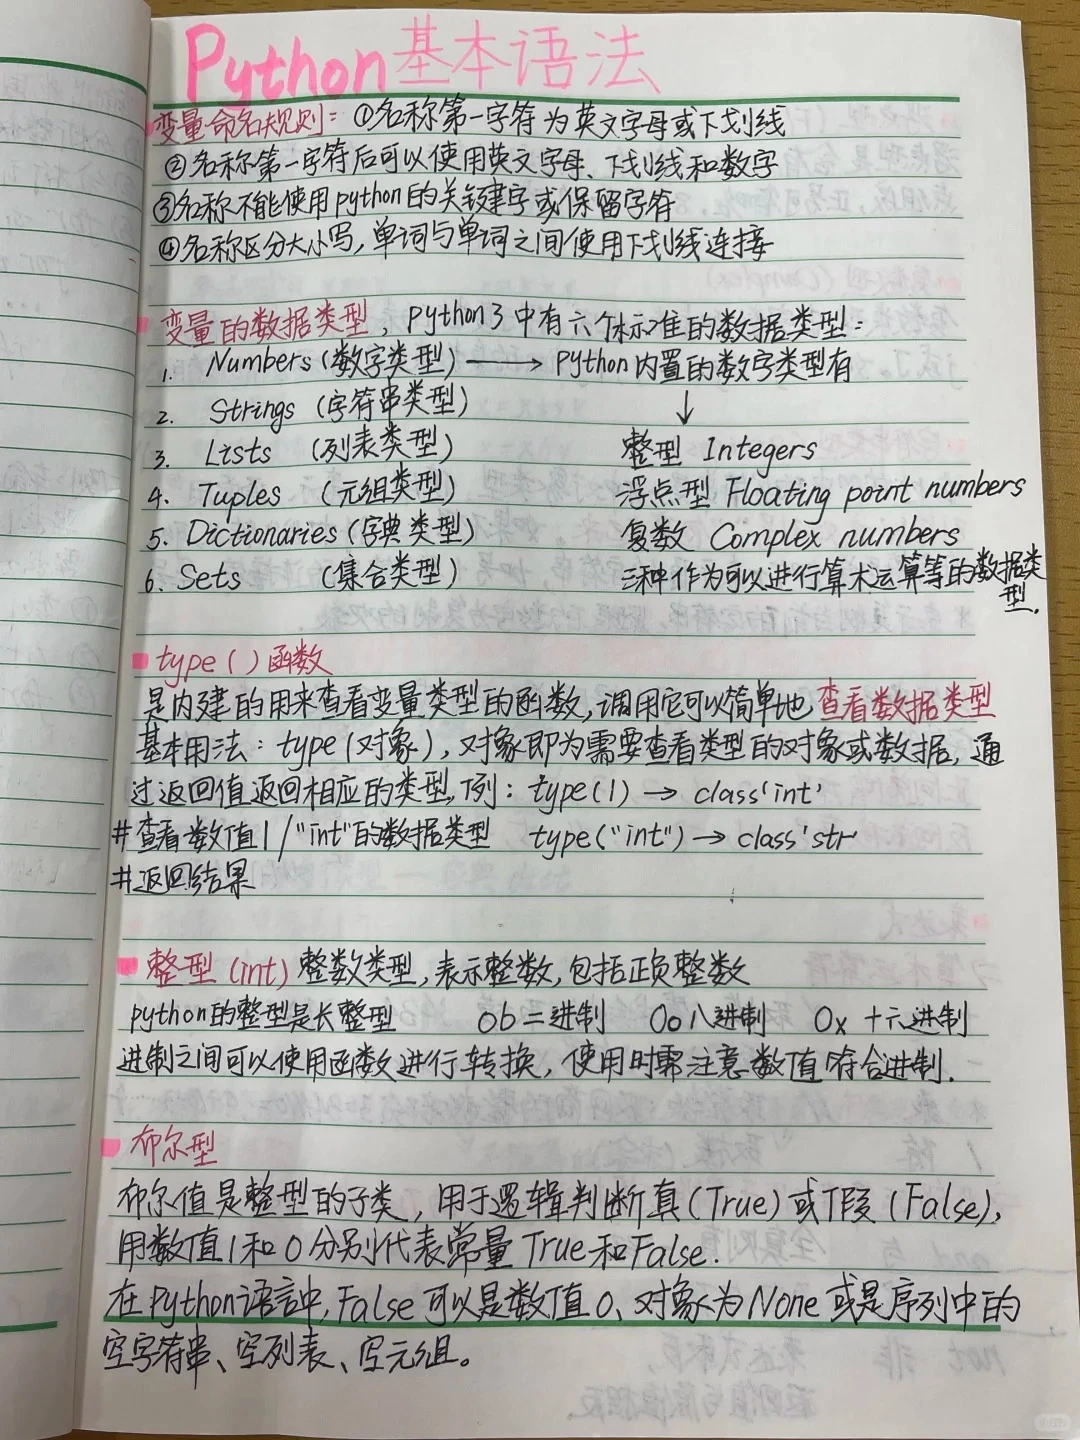 Python基本语法
变量命名规则：①名称第一字符为英文字母或下划线
②名称第一字符后可以使用英文字母、下划线和数字
③名称不能使用python的关键字或保留字符
④名称区分大小写，单词与单词之间使用下划线连接
变量的数据类型，python3中有六个标准的数据类型：
1. Numbers（数字类型）→ python内置的数字类型有
2. Strings（字符串类型） ↓
3. Lists （列表类型） 整型 Integers
4. Tuples （元组类型） 浮点型 Floating point numbers
5. Dictionaries（字典类型） 复数 Complex numbers
6. Sets （集合类型） 三种作为可以进行算术运算等的数据类
型.
type（）函数
是内建的用来查看变量类型的函数，调用它可以简单地查看数据类型
基本用法：type（对象），对象即为需要查看类型的对象或数据，通
过返回值返回相应的类型，例：type(1) → class'int'
#查看数值1/"int"的数据类型 type("int") → class'str'
#返回结果
整型（int）整数类型，表示整数，包括正负整数
python的整型是长整型 0b二进制 0o八进制 0x十六进制
进制之间可以使用函数进行转换，使用时需注意数值符合进制.
布尔型
布尔值是整型的子类，用于逻辑判断真（True）或假（False），
用数值1和0分别代表常量True和False.
在python语言中，False可以是数值0、对象为None或是序列中的
空字符串、空列表、空元组。